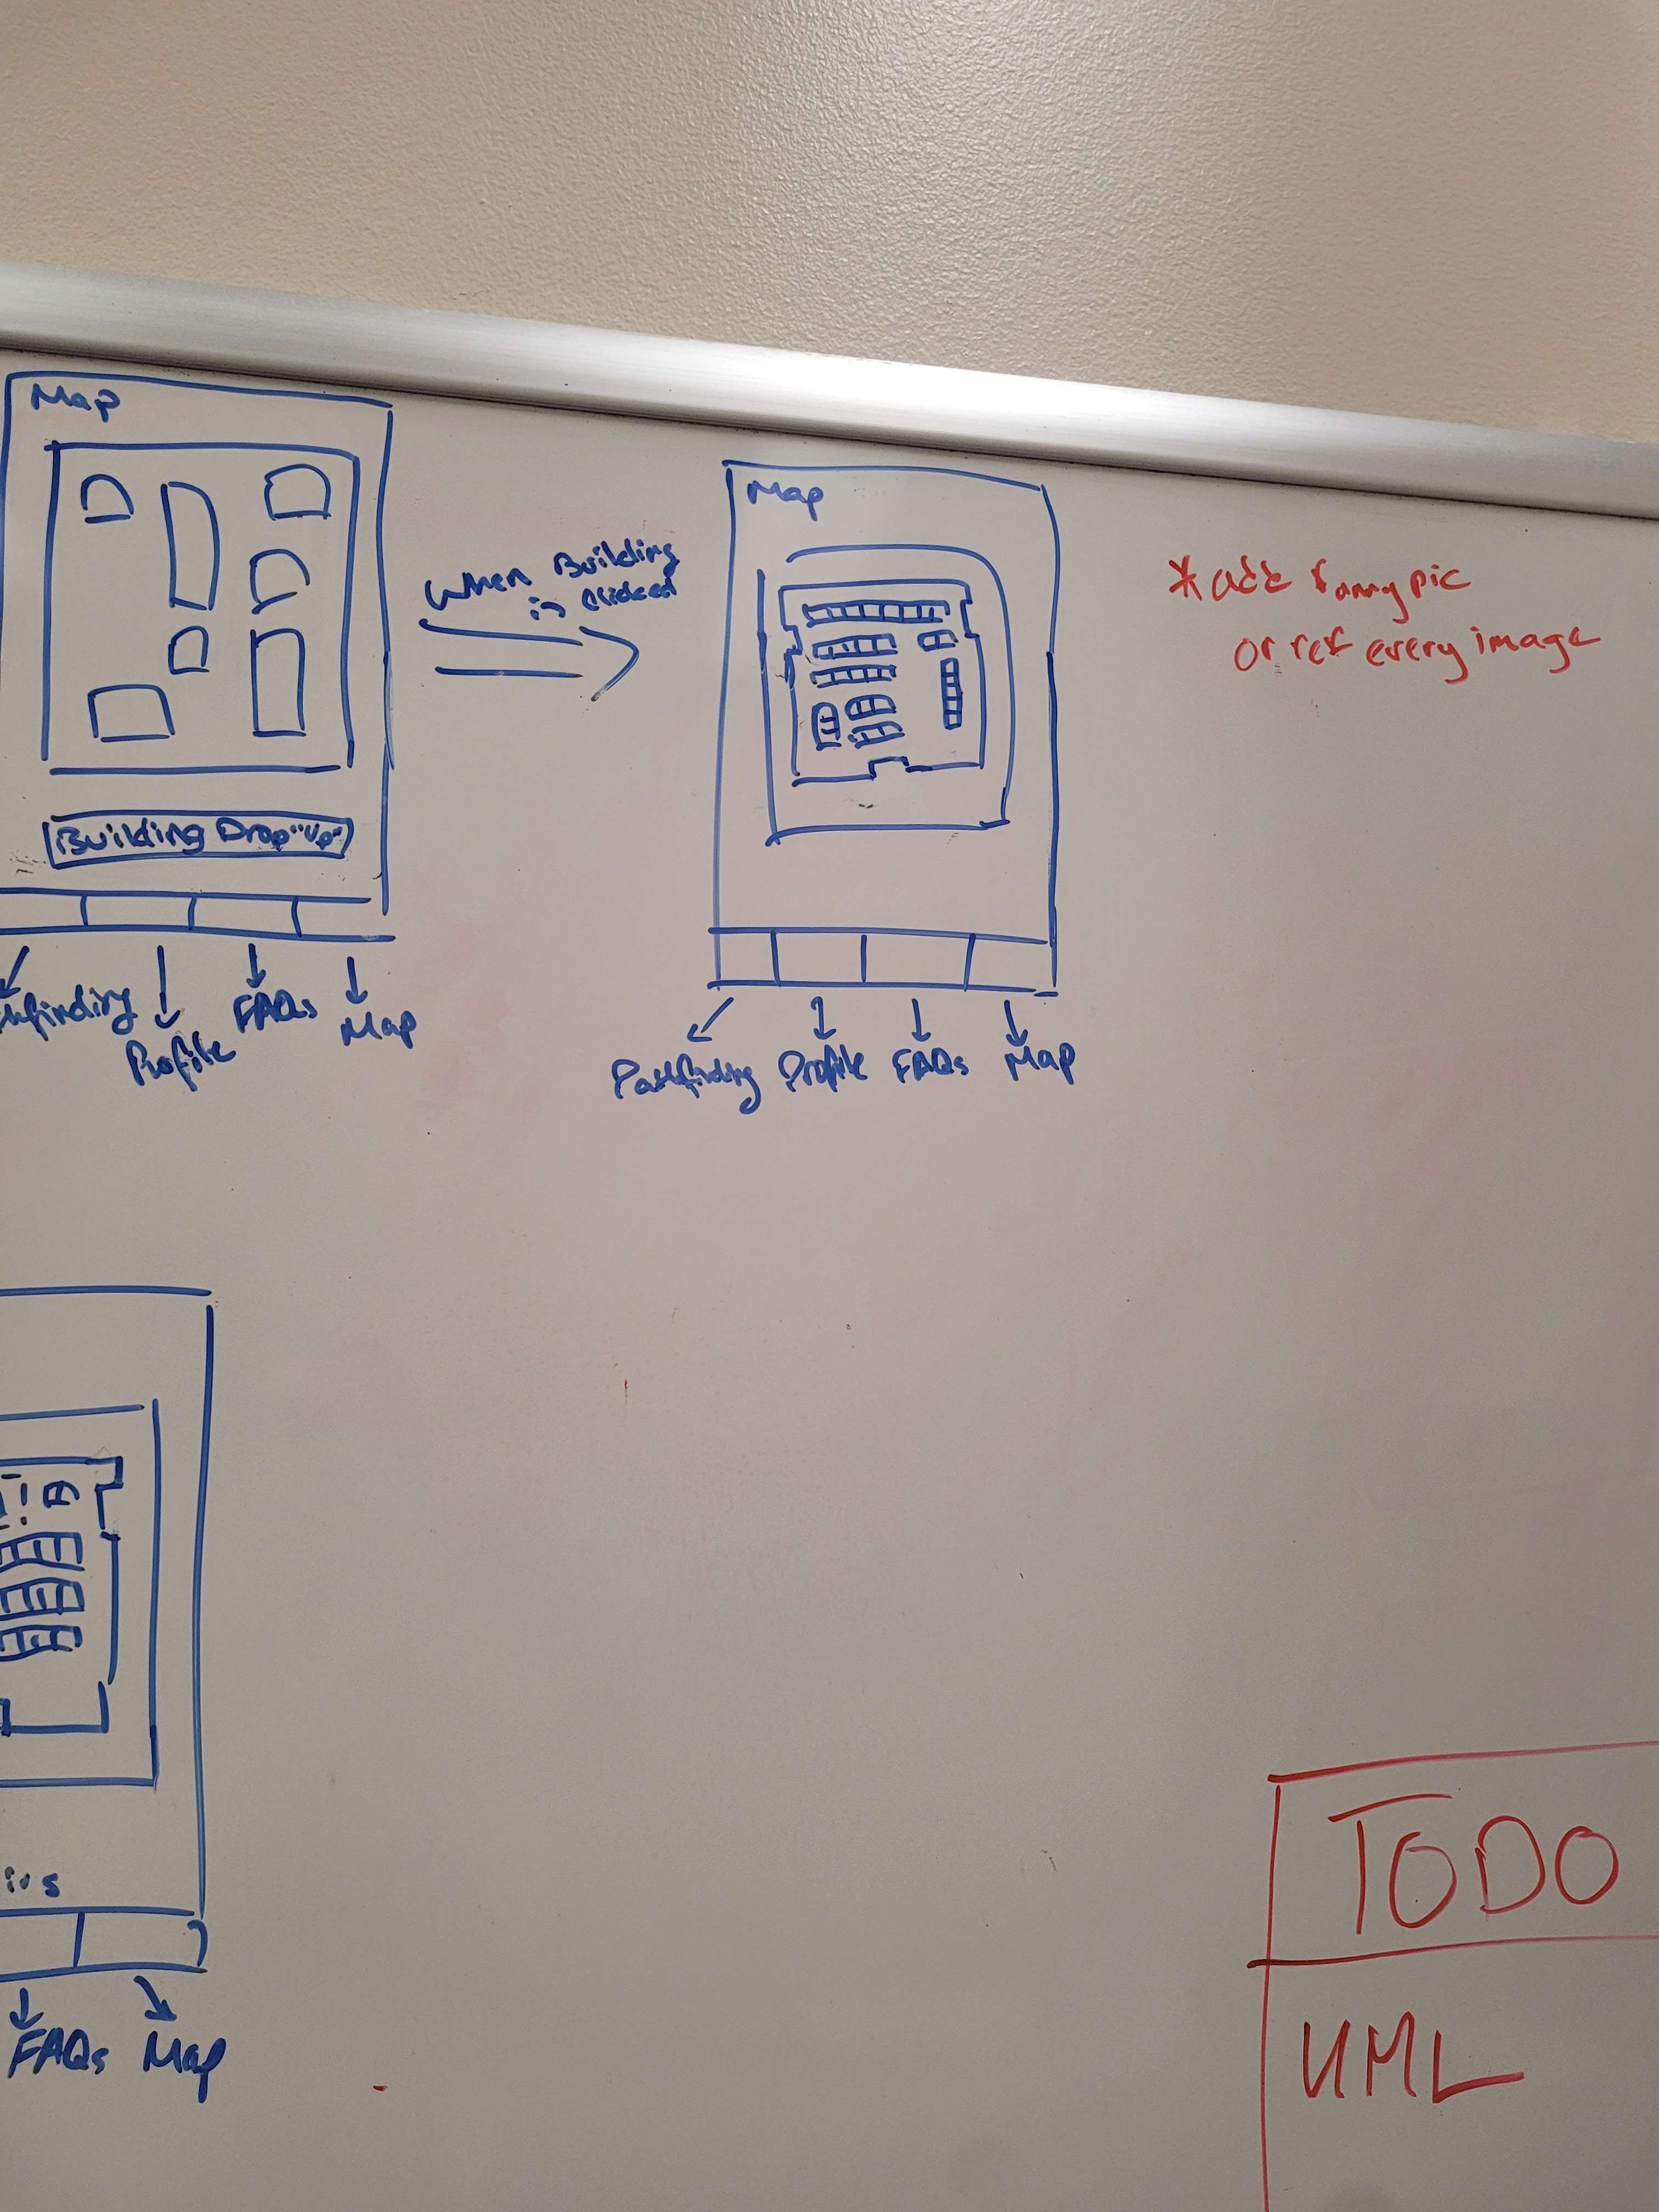 Map
Building Drop "Up"
Profile
FAQs
Map
When Building
is clicked
Map
Pathfinding
Profile
FAQs
Map
* add funny pic
or ref every image
FAQs
Map
TODO
UML